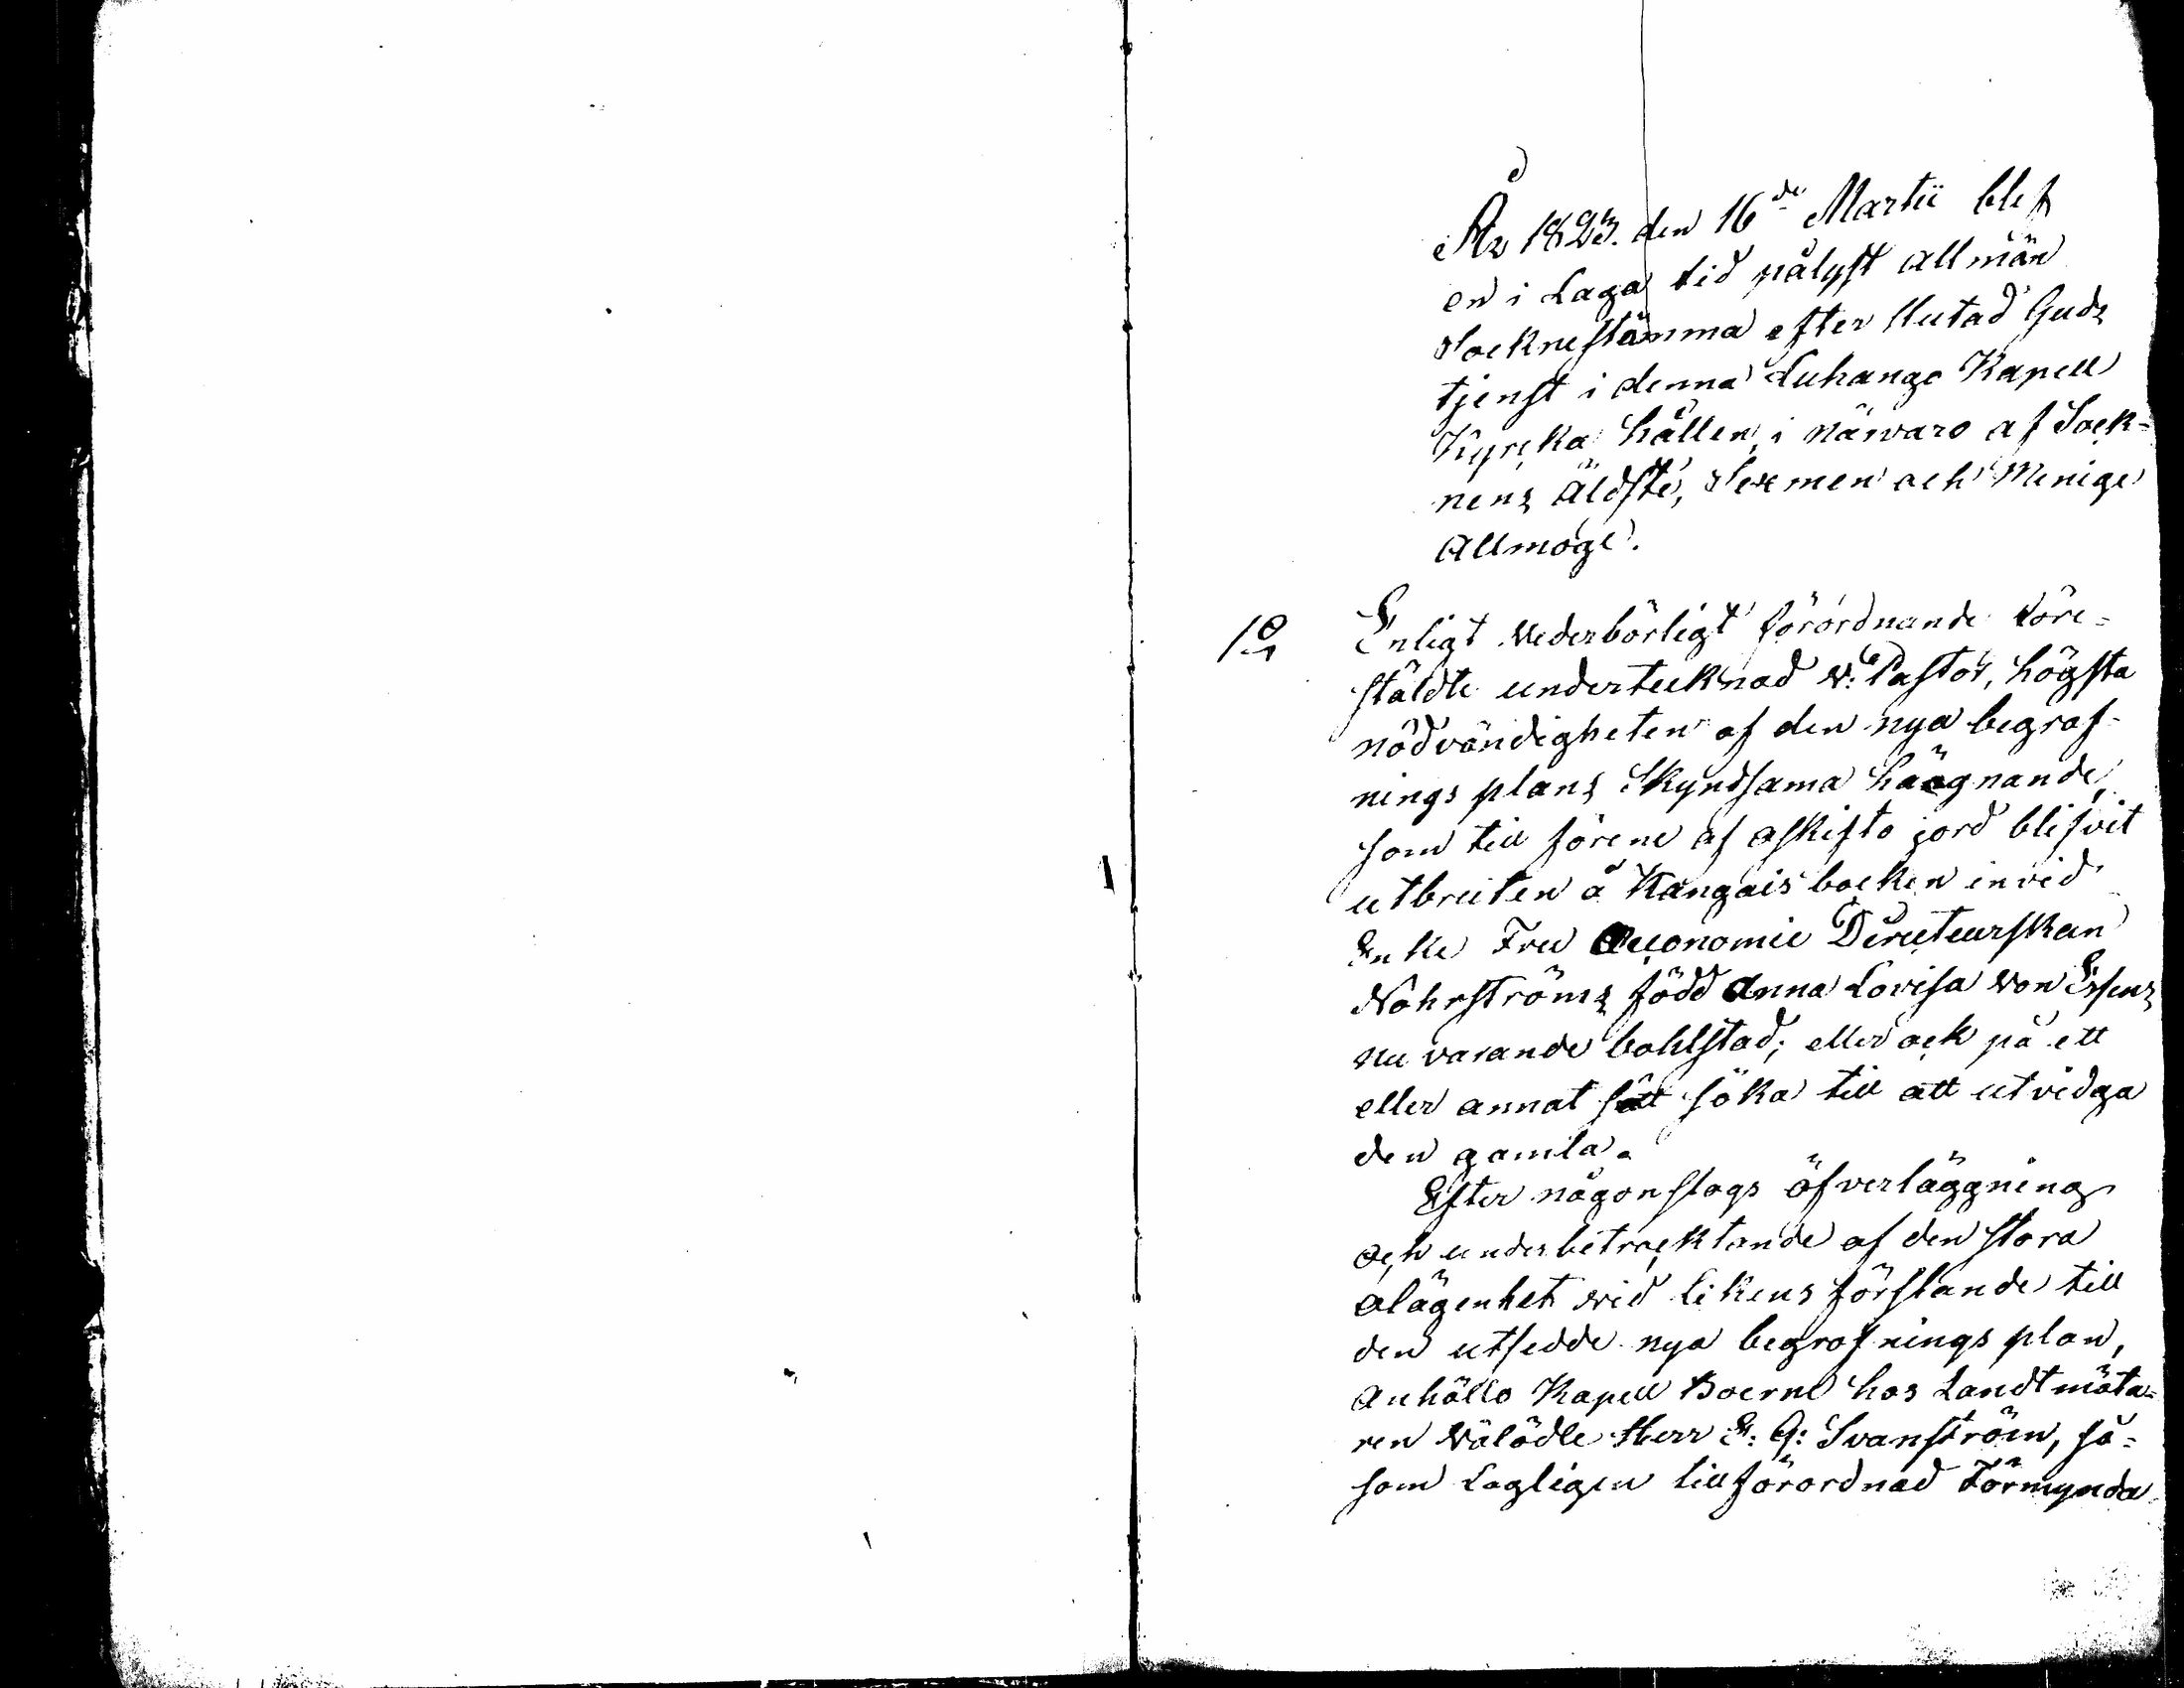 År 1823. den 16de Martii blef
en i Laga tid pålyst allmän
Sockne stämma efter slutad Guds
tjenst i denna Luhango Kapell
Kyrcka hållen, i närvaro af Sock-
nens äldste, Sexmen och Menige
Allmoge.
1o Enligt vederbörligt förordnande före-
stälde undertecknad V: Pastor, högsta
nödvändigheten af den nya begraf-
nings plans skyndsama hägnande,
som till förene af oskifto jord blifvit
utbruten å Kangais backen invid
Enke Fru Oeconomie Directeurskan
Nohrströms född Anna Lovisa von Essens
nu varande bohlstad; eller ock på ett
eller annat sätt söka till att utvidga
den gamla.
Efter någon slags öfverläggning
och under betracktande af den stora
olägenhet vid likens förslande till
den utsedde nya begrafnings plan,
anhöllo Kapell Boerne hos Landtmäta-
ren Välädle Herr E: G: Svanström, så-
som Lagligen tillförordnad Förmynda